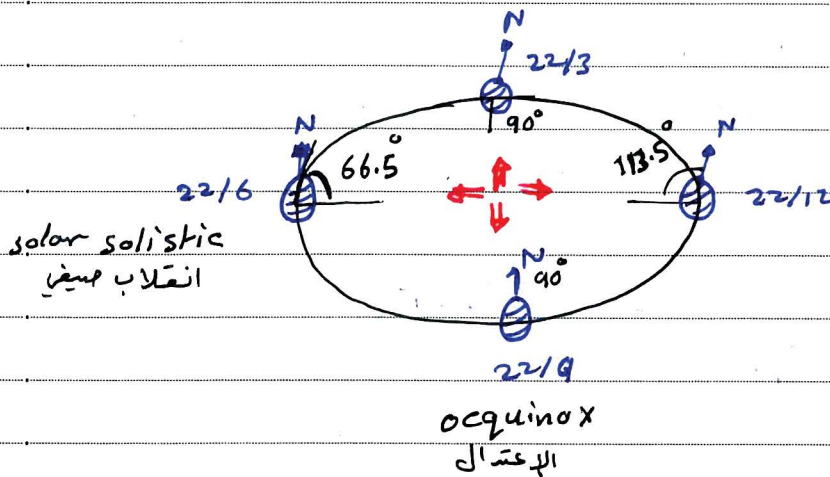 N
22/3
90°
N
66.5°
113.5°
N
22/6
22/12
solar solistic
انقلاب صيفي
N
90°
22/9
ocquinox
الإعتدال